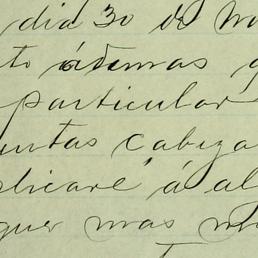 dia 30 de No
to ádemas q
particular
untas cabeza
plicare á al
quer mas m